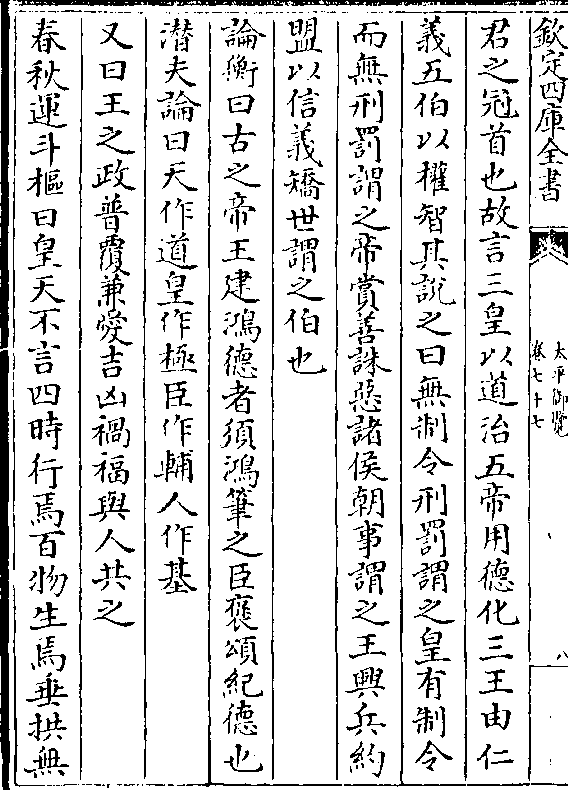 欽定四庫全書
太平御覽
卷七十七
八
君之冠首也故言三皇以道治五帝用德化三王由仁
義五伯以權智其説之曰無制令刑罰謂之皇有制令
而無刑罰謂之帝賞善誅惡諸侯朝事謂之王興兵約
盟以信義矯世謂之伯也
論衡曰古之帝王建鴻德者須鴻筆之臣褒頌紀德也
潜夫論曰天作道皇作極臣作輔人作基
又曰王之政普覆兼愛吉凶禍福與人共之
春秋運斗樞曰皇天不言四時行焉百物生焉垂拱無